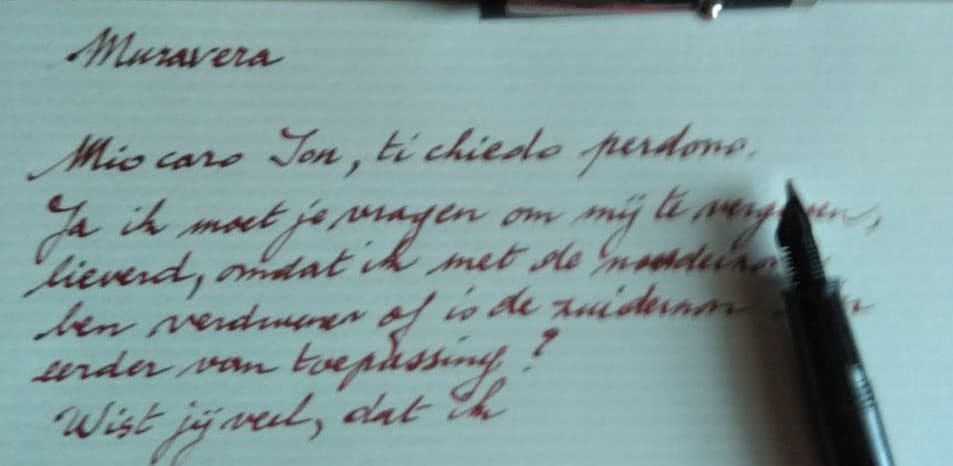 Muravera
Mio caro Ion, ti chiedo perdono.
Ja ik moet je vragen om mij te vergeven,
lieverd, omdat ik met de
ben verdwenen of is de zuidernon
eerder van toepassing?
Wist jij veel, dat ik